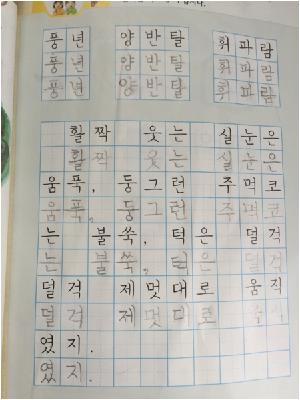 풍년 양반탈 휘파람
풍년 양반탈 휘파람
풍년 양반탈 휘파람
활짝 웃는 실눈은
활짝 웃는 실눈은
움푹, 둥그런 주먹코
움푹, 둥그런 주먹코
는 불쑥, 턱은 덜걱
는 불쑥, 턱은 덜걱
덜걱 제멋대로 움직
덜걱 제멋대로 움직
였지.
였지.